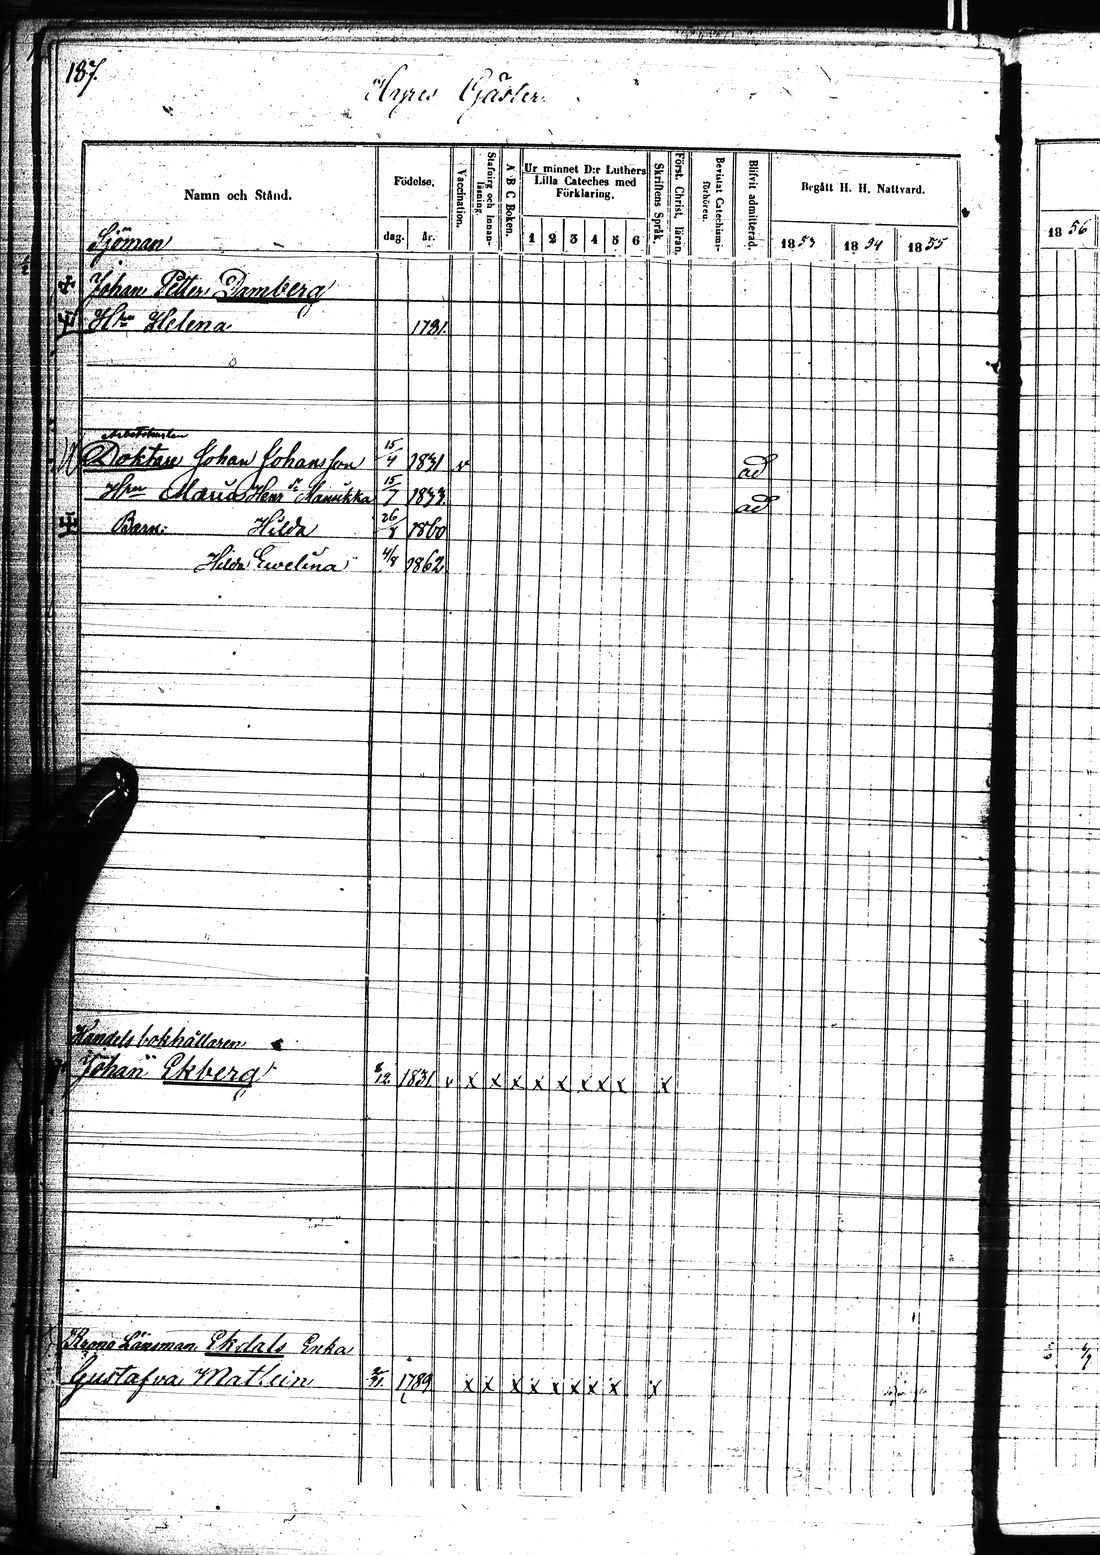 187.
Hyres Gäster.
Namn och Stånd.
Födelse.
dag.
år.
Vaccination.
Stafning och Innanläsning.
A B C Boken.
Ur minnet D:r Luthers Lilla Cateches med Förklaring.
1 2 3 4 5 6
Skriftens Språk.
Först. Christ. läran.
Bevistat Catechismiförhören.
Blifvit admitterad.
Begått H. H. Nattvard.
1853 1854 1855
1856
Sjöman
Johan Petter Damberg
H:u Helena 1781.
Arbetskarlen
Doktare Johan Johansson 15/4 1831 v ad
Hru Maria Henr. Manukka 15/7 1833. ad
Barn: Hilda 26/8 1860
Hilda Ewelina 4/8 1862
Handelsbokhållaren
Johan Ekberg 8/12. 1831 v x x x x x x x x x
Krono Länsman Ekdals Enka
Gustafva Matlein 1789 x x x x x x x x x